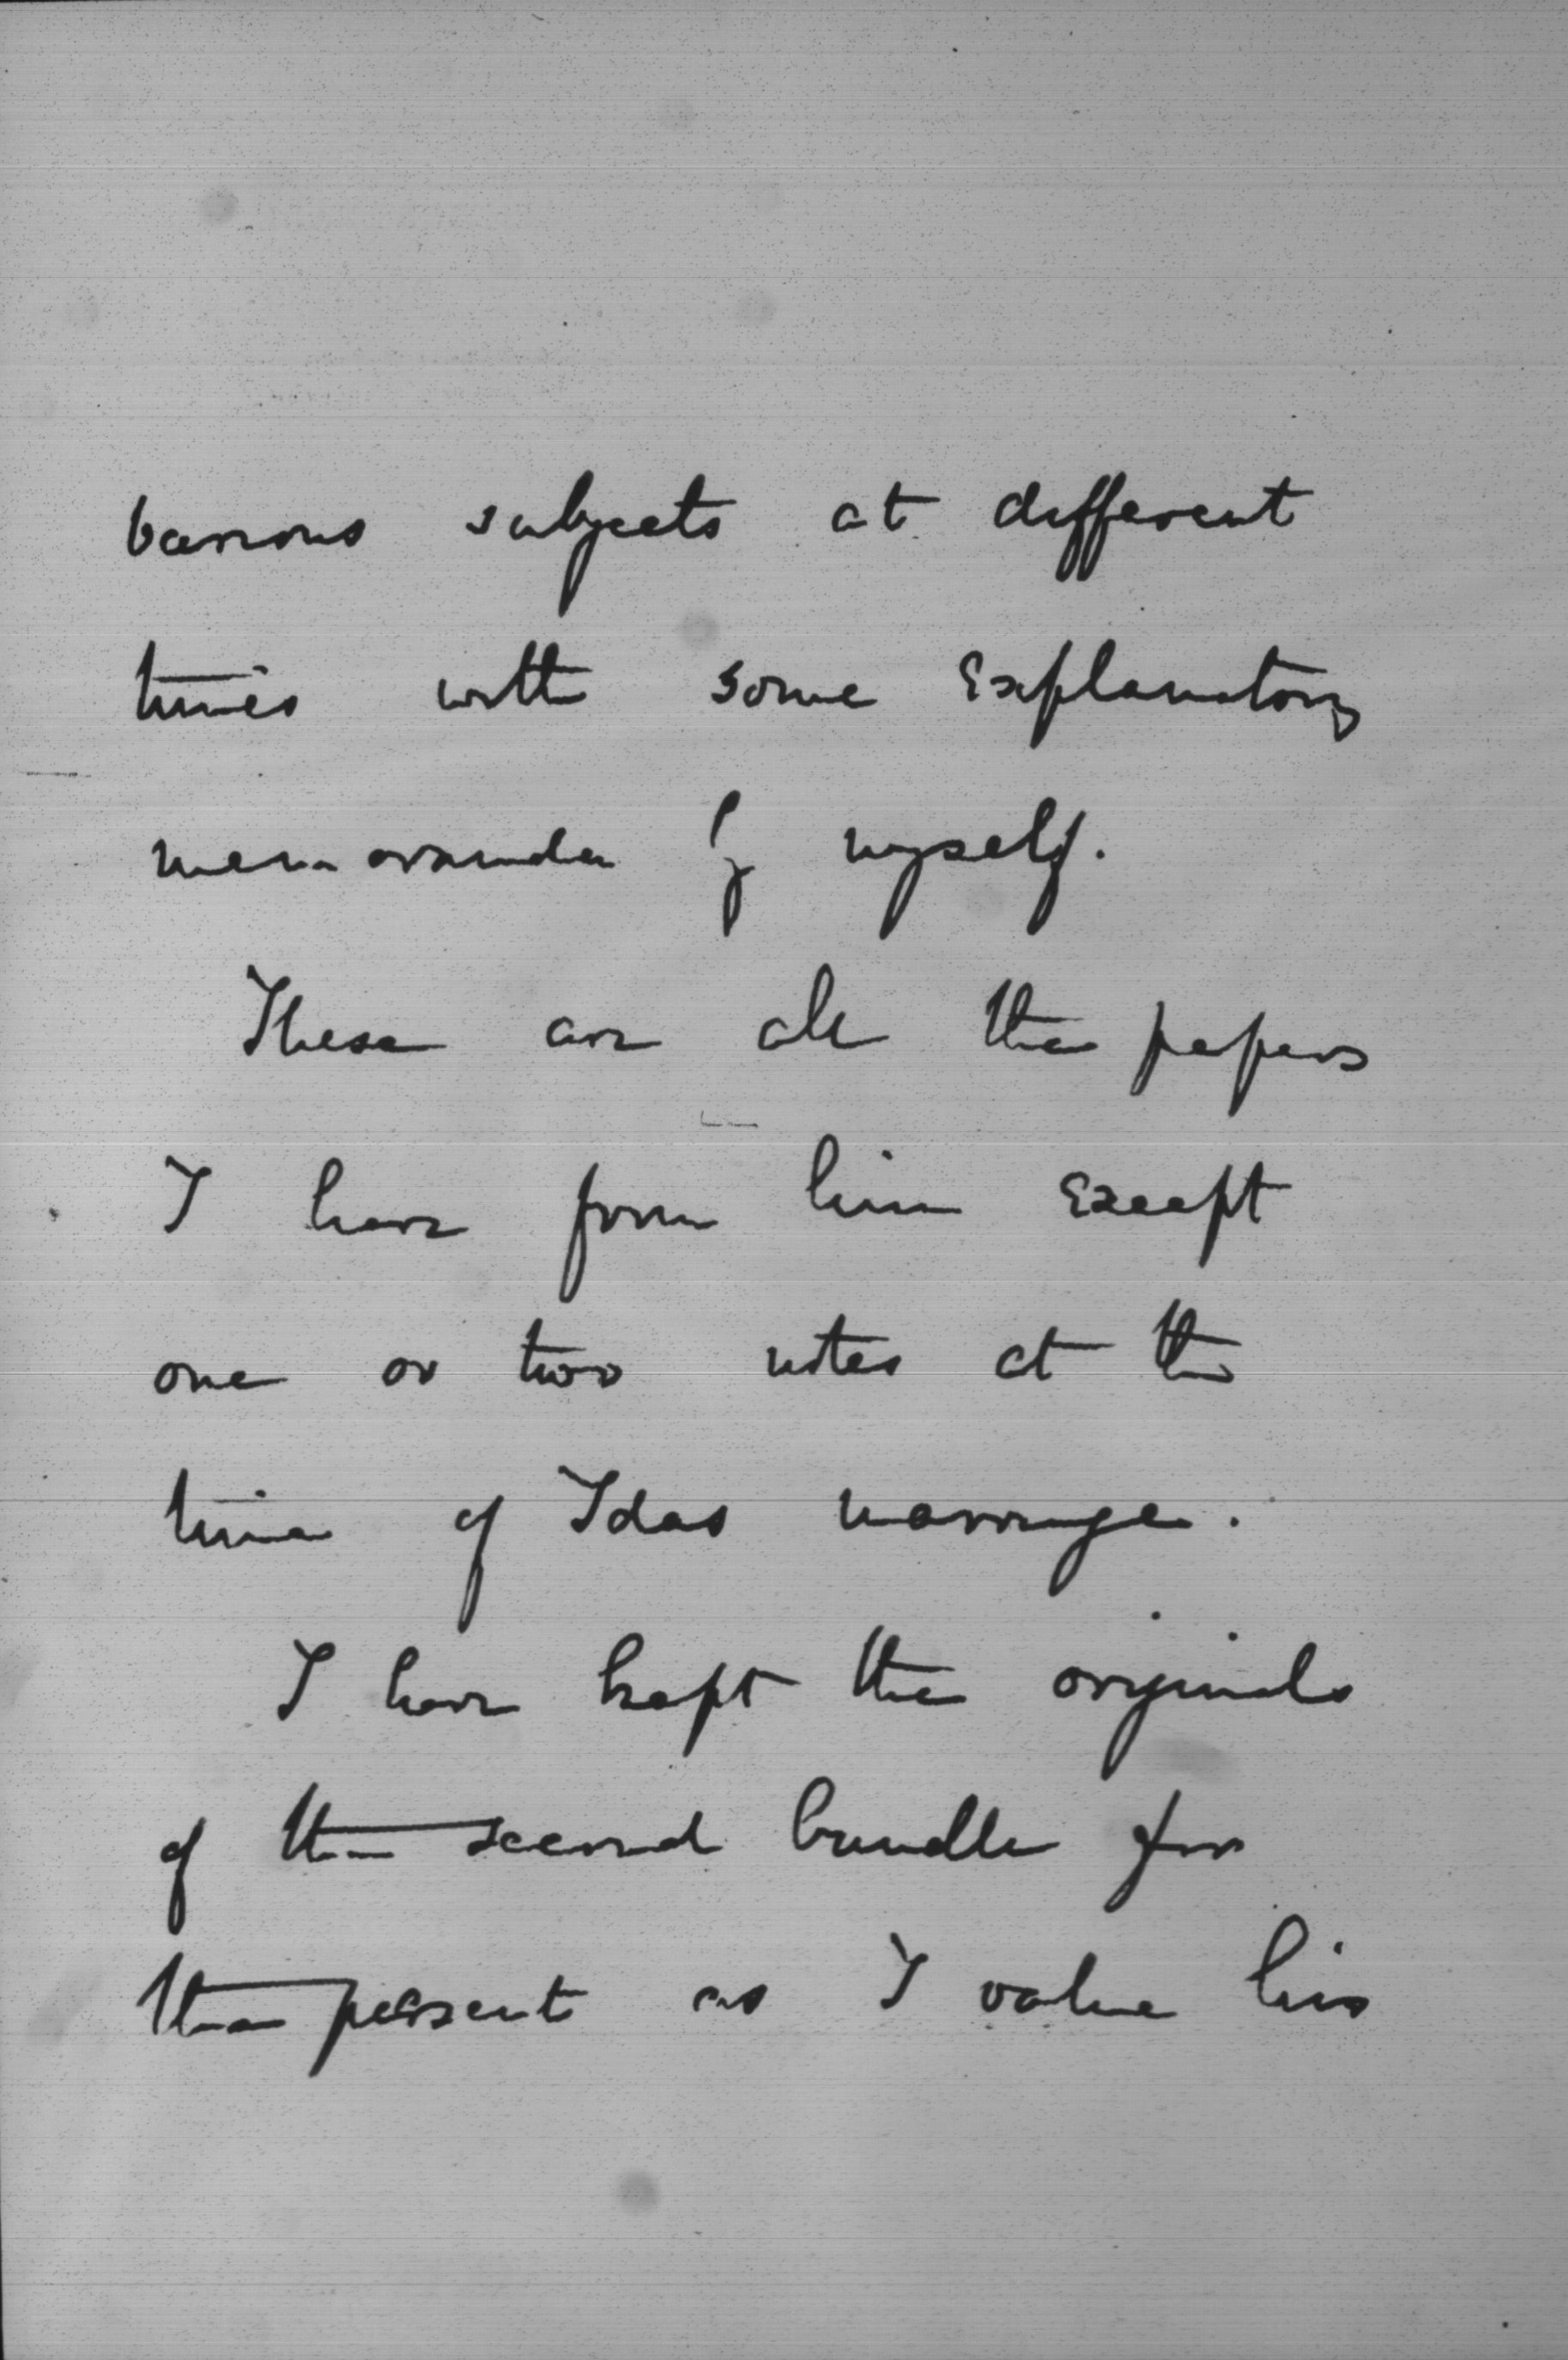 various subjects at different
times with some explanatory
memoranda by myself.
These are all the papers
I have from him except
one or two notes at the
time of Idas marriage.
I have kept the originals
of the second bundle for
the present as I value his